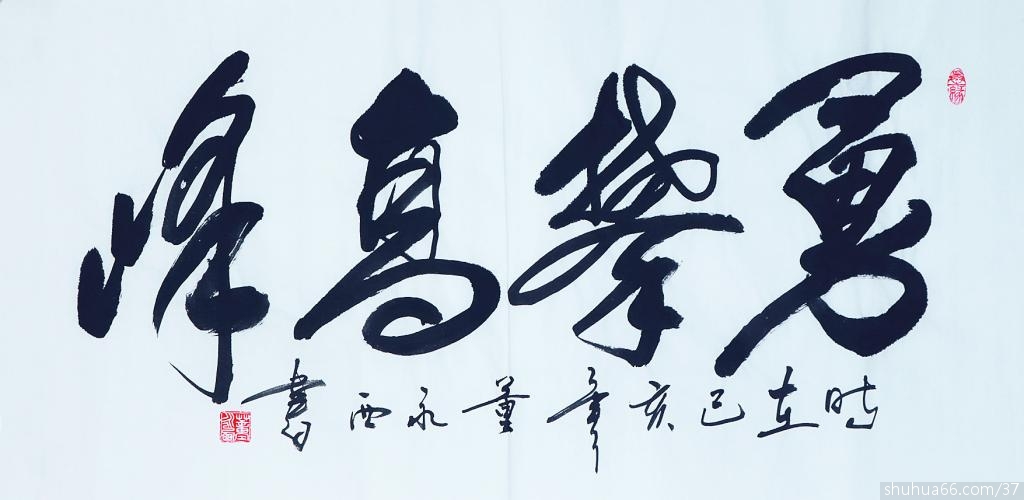 勇攀高峰
時在己亥年董永西書
shuhua66.com/37